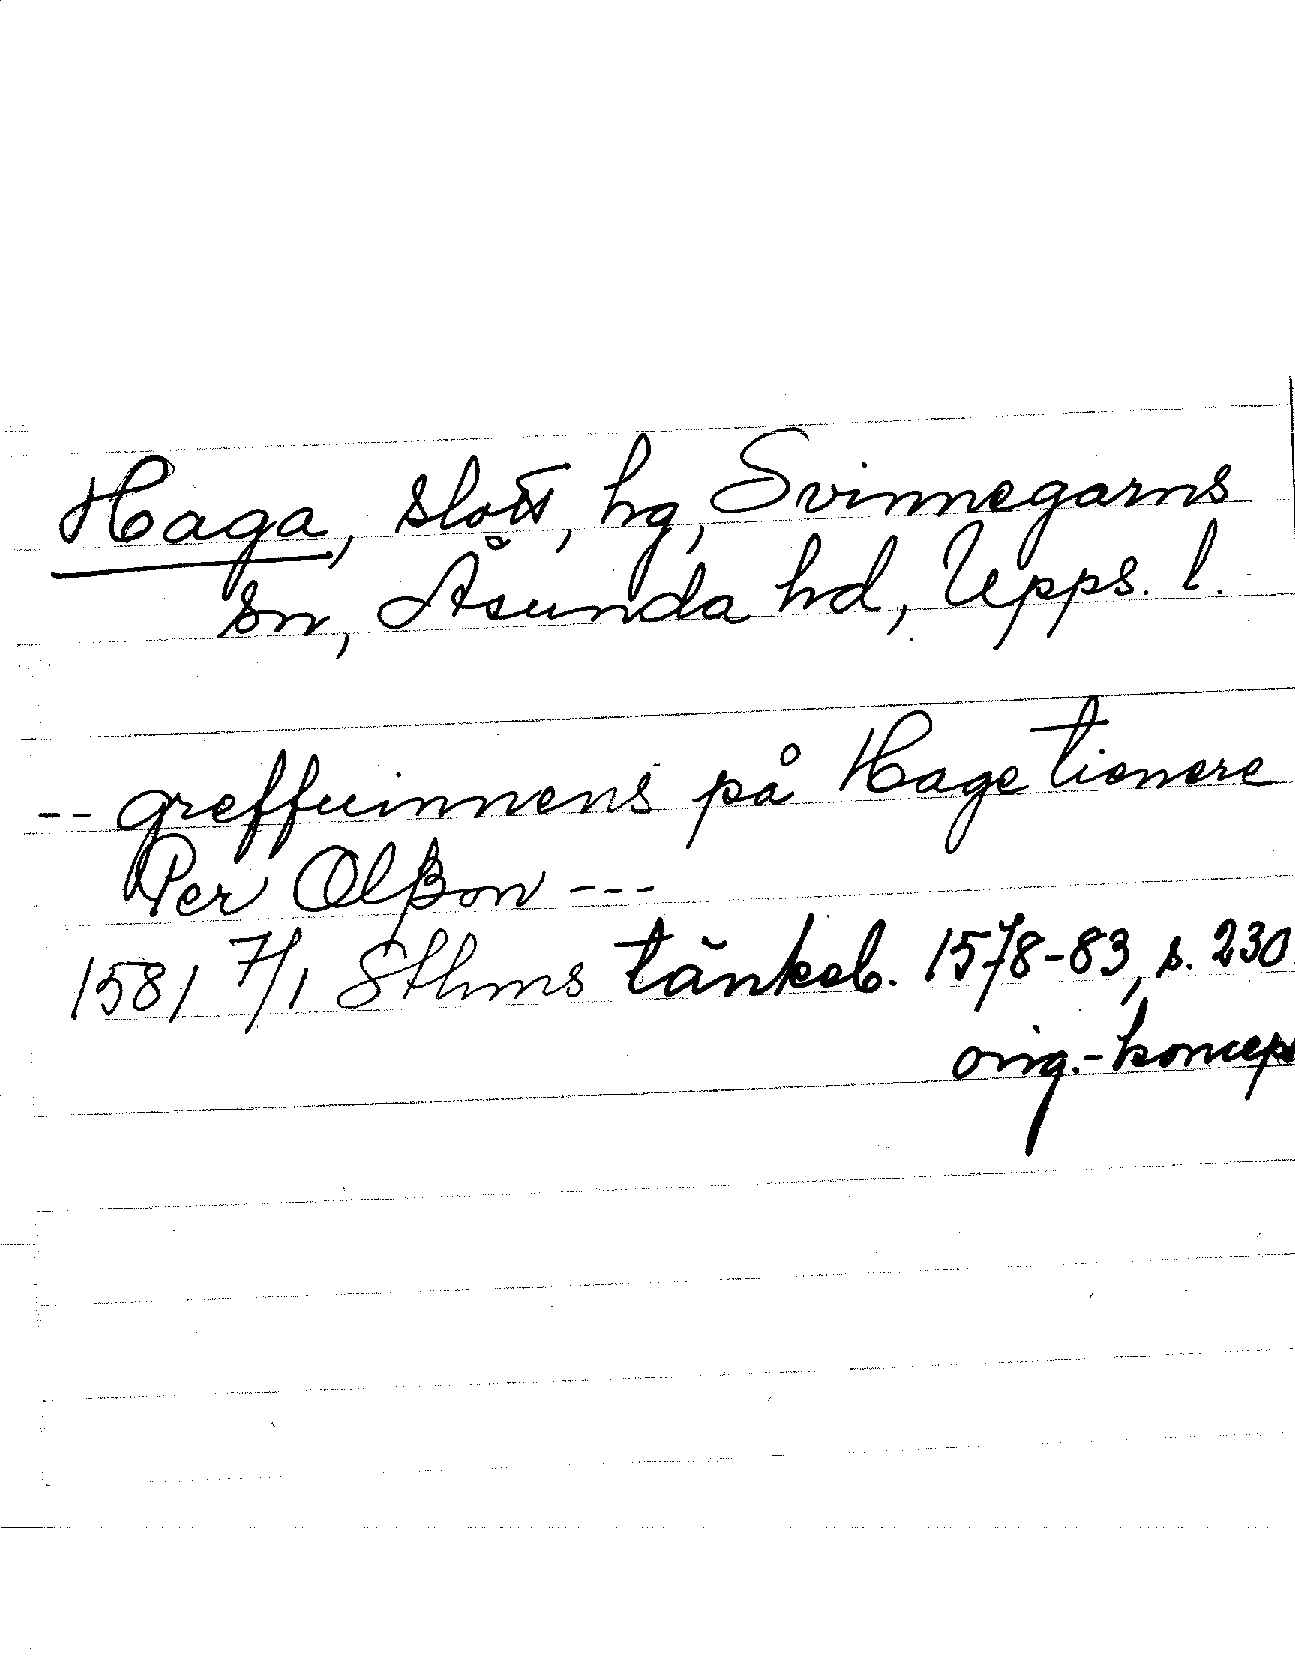 Haga, slott, hg, Svinnegarns
sn, Åsunda hd, Upps. l.
-- greffuinnens på Hage tienere
Per Olßon ---
1581 7/1 Sthms tänkeb. 1578-83, s. 230
orig.-koncep